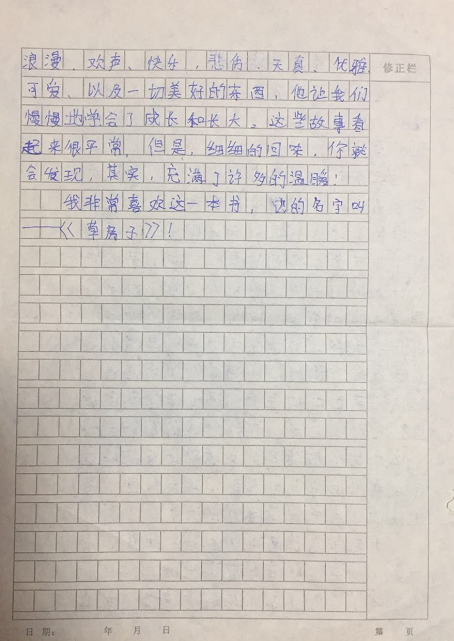 浪漫、欢声、快乐,悲伤、天真、优雅、 修正栏
可爱、以及一切美好的东西,他让我们
慢慢地学会了成长和长大。这些故事看
起来很平常,但是,细细的回味,你就
会发现,其实,充满了许多的温暖!
我非常喜欢这一本书,它的名字叫
——《草房子》!
日 期: 年 月 日 第 页